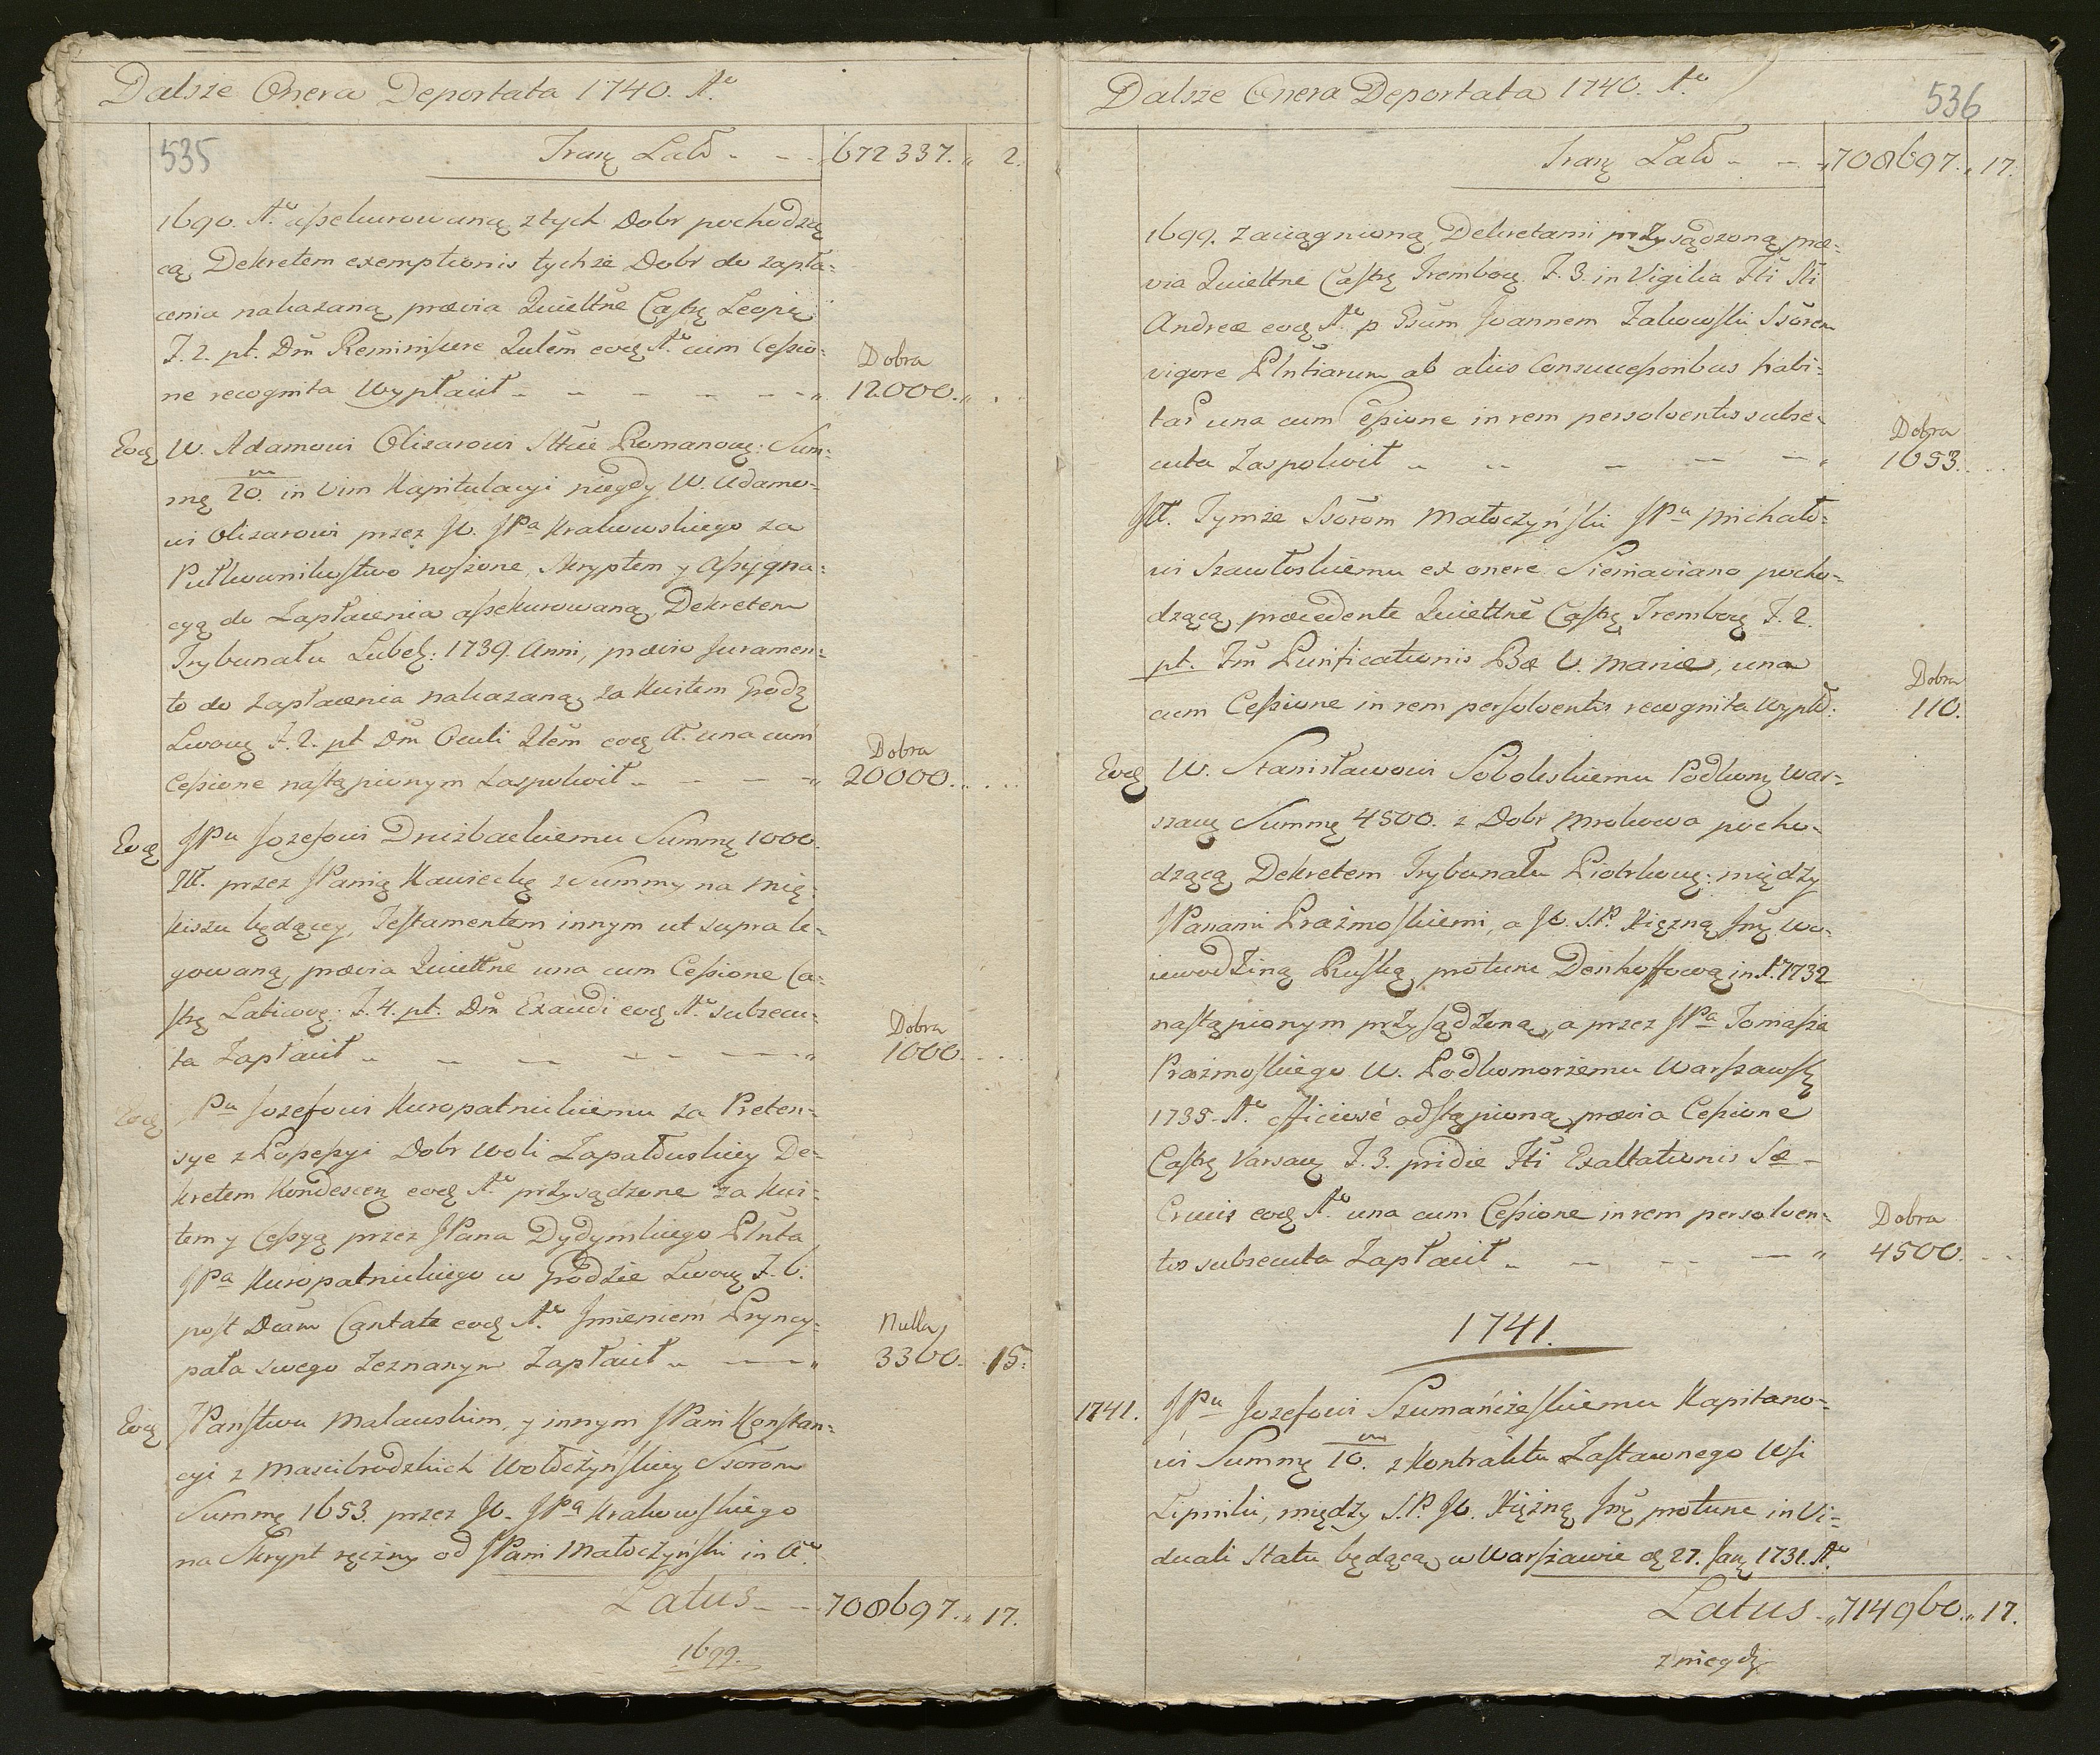 Dalsze Onera Deportata 1740. Aº
535
Tranꝫ Lat9 672337. 2.
1690. Aº assekurowaną z tych Dobr pochodzą
cą, Dekretem exemptionis tychże Dobr do zapła-
cenia nakazaną, prævia Quiettñe Castꝫ Leopꝫ
F. 2. pt. Dm̃ Reminiscere Qulem̃ eodꝫ Aº cum Cessio-
ne recognita Wypłacił
Dobra
12000.
Eodꝫ W. Adamowi Olizarowi Stcie Romanowꝫ: Sum-
mę 20. m in Vim Kapitulacyi niegdy W. Adamo-
wi Olizarowi przez JW. JPa Krakowskiego za
Pułkownikostwo noszone, Skryptem y Assygna-
cyą do Zapłacenia assekurowaną, Dekretem
Trybunału Lubelꝫ: 1739. Anni, prævio Juramen-
to do zapłacenia nakazaną, za Kwitem Grodꝫ
Lwowꝫ F. 2. pt Dm̃ Oculi Qlem̃ eodꝫ Aº una cum
Cessione nastąpionym Zaspokoił
Dobra
20000.
Eodꝫ JPu Jozefowi Druzbackiemu Summę 1000.
Złł. przez JPanią Kawiecką z Summy na Mię-
kiszu będącey, Testamentem innym ut supra le-
gowaną, prævia Quiettñe una cum Cessione Ca-
strꝫ Laticovꝫ: F. 4. pt. Dm̃ Exaudi eodꝫ Aº subsecu-
ta Zapłacił
Dobra
1000.
Eodꝫ JPu Jozefowi Kuropatnickiemu za Preten-
sye z Possessyi Dobr Woli Zapałowskiey De-
kretem Kondescenꝫ eodꝫ Aº przysądzone za Kwi-
tem y Cessyą przez JPana Dydyńskiego Plñta
JPa Kuropatnickiego w Grodzie Lwowꝫ F. 6.
post Dcam Cantate eodꝫ Aº Jmieniem Pryncy-
pała swego Zeznanym Zapłacił
Nulla
3360. 15.
Eodꝫ JPaństwu Malawskim, y innym JPani Konstan-
cyi z Mascibrodzkich Wołczyńskiey Ssorom
Summę 1653. przez JW. JPa Krakowskiego
na Skrypt ręczny od JPani Małoczyński in Aº
Latus 708697. 17.
1699.
Dalsze Onera Deportata 1740. Aº
536
Tranꝫ Lat9 708697. 17.
1699. zaciągnioną, Dekretami przysądzoną, præ-
via Quiettne Castꝫ Trembovꝫ F. 3. in Vigilia Fti Sti
Andreæ eodꝫ Aº p Gsum Joannem Zakowski Ssorem
vigore Plntiarum ab aliis Consuccessoribus habi-
tar una cum Cessione in rem persolventis subse-
cuta Zaspokoił
Dobra
1653.
JW. Tymże Ssorom Małoczyński JPu Michało-
wi Szawłoskiemu ex onere Sieniaviano pocho-
dzącą, præcedente Quiettne Castꝫ Trembovꝫ F. 2.
pt. Fm̃ Purificationis Bæ V. Mariæ, una
cum Cessione in rem persolventis recognita Wypłd:
Dobra
110.
Eodꝫ W. Stanisławowi Sobolskiemu Podkomꝫ War-
szawꝫ Summę 4500. z Dobr Mrokowa pocho-
dzącą, Dekretem Trybunału Piotrkowꝫ: między
JPanami Prażmoskiemi, a JW. S.P. Xiężną Jmc̃ Wo-
iewodziną Ruską, protunc Denhoffową in Aº 1732
nastąpionym przysądzoną, a przez JPa Tomasza
Prazmoskiego W. Podkomorzemu Warszawskꝫ
1735. Aº officiose odstąpioną, prævia Cessione
Castꝫ Varsavꝫ F. 3. pridie Fti Exaltationis Sæ
Crucis eodꝫ Aº una cum Cessione in rem persolven-
tis subsecuta Zapłacił
Dobra
4500.
1741.
1741. JPu Jozefowi Szumańczeskiemu Kapitano-
wi Summę 10. m z Kontraktu Zastawnego Wsi
Lipniki, między S.P. JW. Xiężną Jmc̃ protunc in Vi-
duali Statu będącą w Warszawie dꝫ 27. Janꝫ 1731. Aº
Latus 714960. 17.
z niegdꝫ